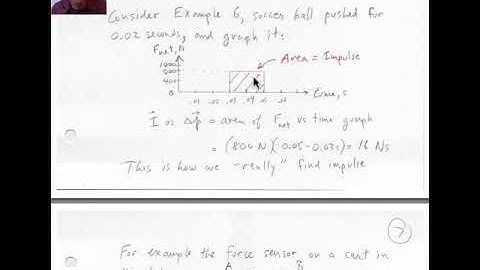 Consider Example 6, soccer ball pushed for
0.02 seconds, and graph it:
Fnet, N
1000
800
400
0
Area = Impulse
.01 .02 .03 .04 .05 .06
time, s
I or Δp = area of Fnet vs time graph
= (800 N)(0.05-0.03s) = 16 Ns
This is how we "really" find impulse
7
For example the force sensor on a cart in
A B